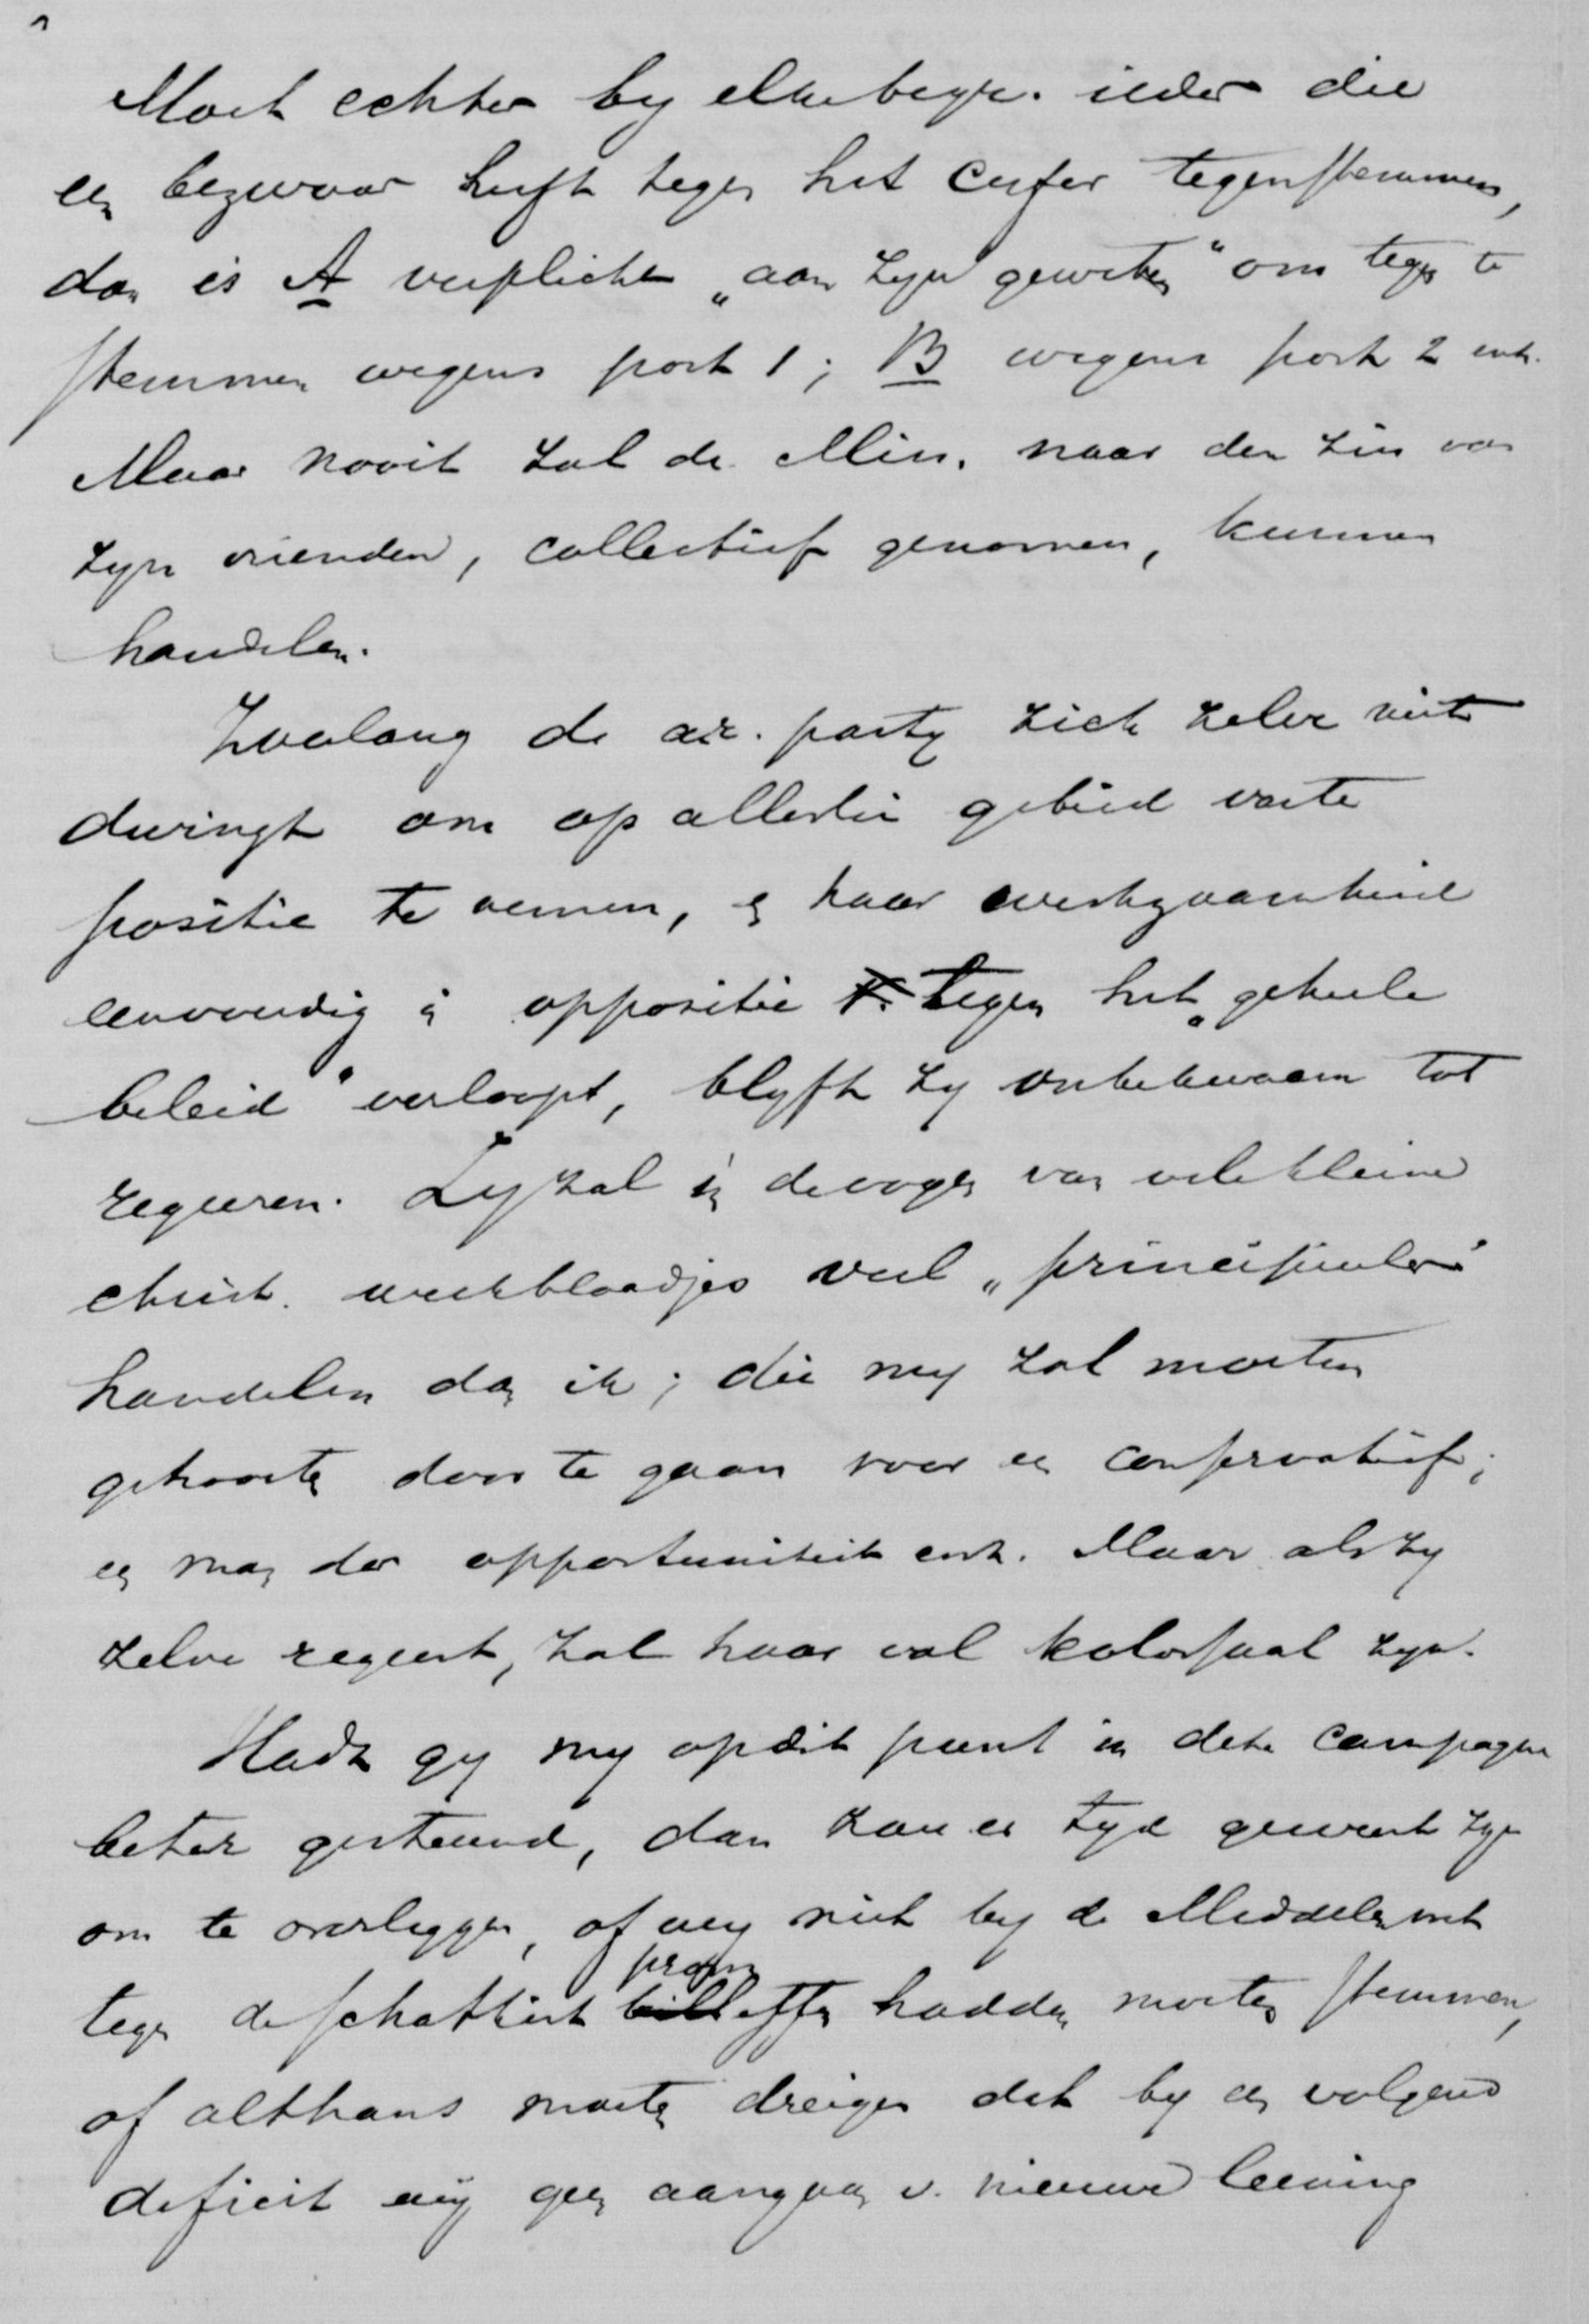 Moet echter by elke begr. ieder die
een bezwaar heeft tegen het cyfer tegenstemmen,
dan is A verplicht „aan zyn geweten" om tegen te
stemmen wegens post 1; B wegens post 2 enz.
Maar nooit zal de Min. naar den zin van
zyn vrienden, collectief genomen, kunnen
handelen.
Zoolang de a.r. party zich zelve niet
dwingt om op allerlei gebied vaste
positie te nemen, en haar werkzaamheid
eenvoudig in oppositie tegen het „geheele
beleid" verloopt, blyft zy onbekwaam tot
regeeren. Zy zal in de oogen van vele kleine
christ. weekblaadjes veel „principieeler"
handelen dan ik; die my zal moeten
getroosten door te gaan voor een conservatief;
een man der opportuniteit enz. Maar als zy
zelve regeert, zal haar val kolossaal zyn.
Hadt gy my op dit punt in deze campagne
beter gesteund, dan zou er tyd geweest zyn
om te overleggen, of wy niet by de Middelenwet
tegen de schatkist prom
essen hadden moeten stemmen,
of althans moeten dreigen dat by een volgend
deficit wy geen aangaan v. nieuwe leening